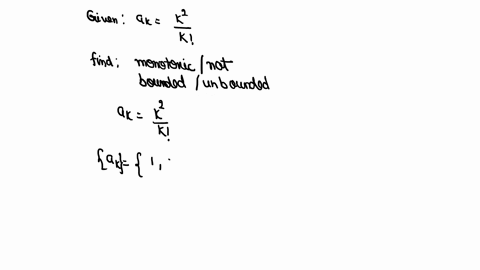 Given: aₖ = k²/k!
find: monotonic/not
bounded/unbounded
aₖ = k²/k!
{aₖ} = { 1, .